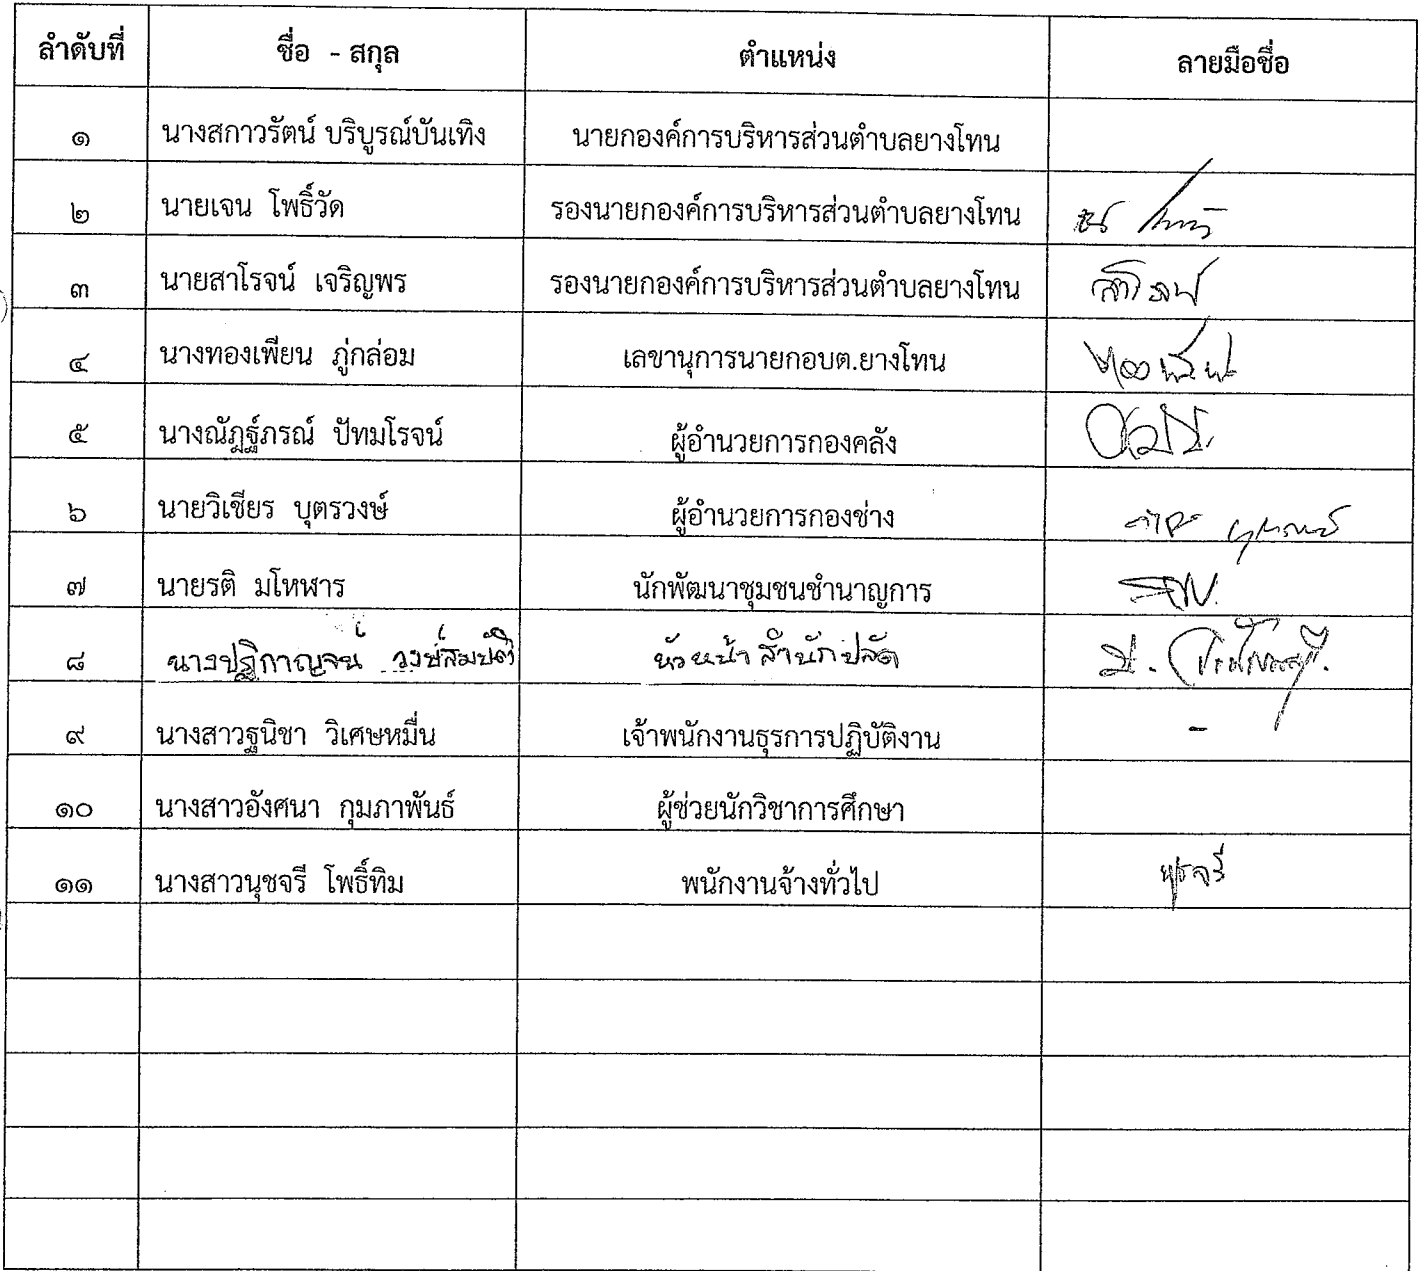 ลำดับที่ ชื่อ - สกุล ตำแหน่ง ลายมือชื่อ
๑ นางสกาวรัตน์ บริบูรณ์บันเทิง นายกองค์การบริหารส่วนตำบลยางโทน
๒ นายเจน โพธิ์วัด รองนายกองค์การบริหารส่วนตำบลยางโทน
๓ นายสาโรจน์ เจริญพร รองนายกองค์การบริหารส่วนตำบลยางโทน สาโรจน์
๔ นางทองเพียน ภู่กล่อม เลขานุการนายกอบต.ยางโทน
๕ นางณัฎฐ์ภรณ์ ปัทมโรจน์ ผู้อำนวยการกองคลัง
๖ นายวิเชียร บุตรวงษ์ ผู้อำนวยการกองช่าง
๗ นายรติ มโหฬาร นักพัฒนาชุมชนชำนาญการ
๘ นางปฏิกาญจน์ วงษ์สมบัติ หัวหน้าสำนักปลัด
๙ นางสาวฐนิชา วิเศษหมื่น เจ้าพนักงานธุรการปฏิบัติงาน -
๑๐ นางสาวอังศนา กุมภาพันธ์ ผู้ช่วยนักวิชาการศึกษา
๑๑ นางสาวนุชจรี โพธิ์ทิม พนักงานจ้างทั่วไป นุชจรี